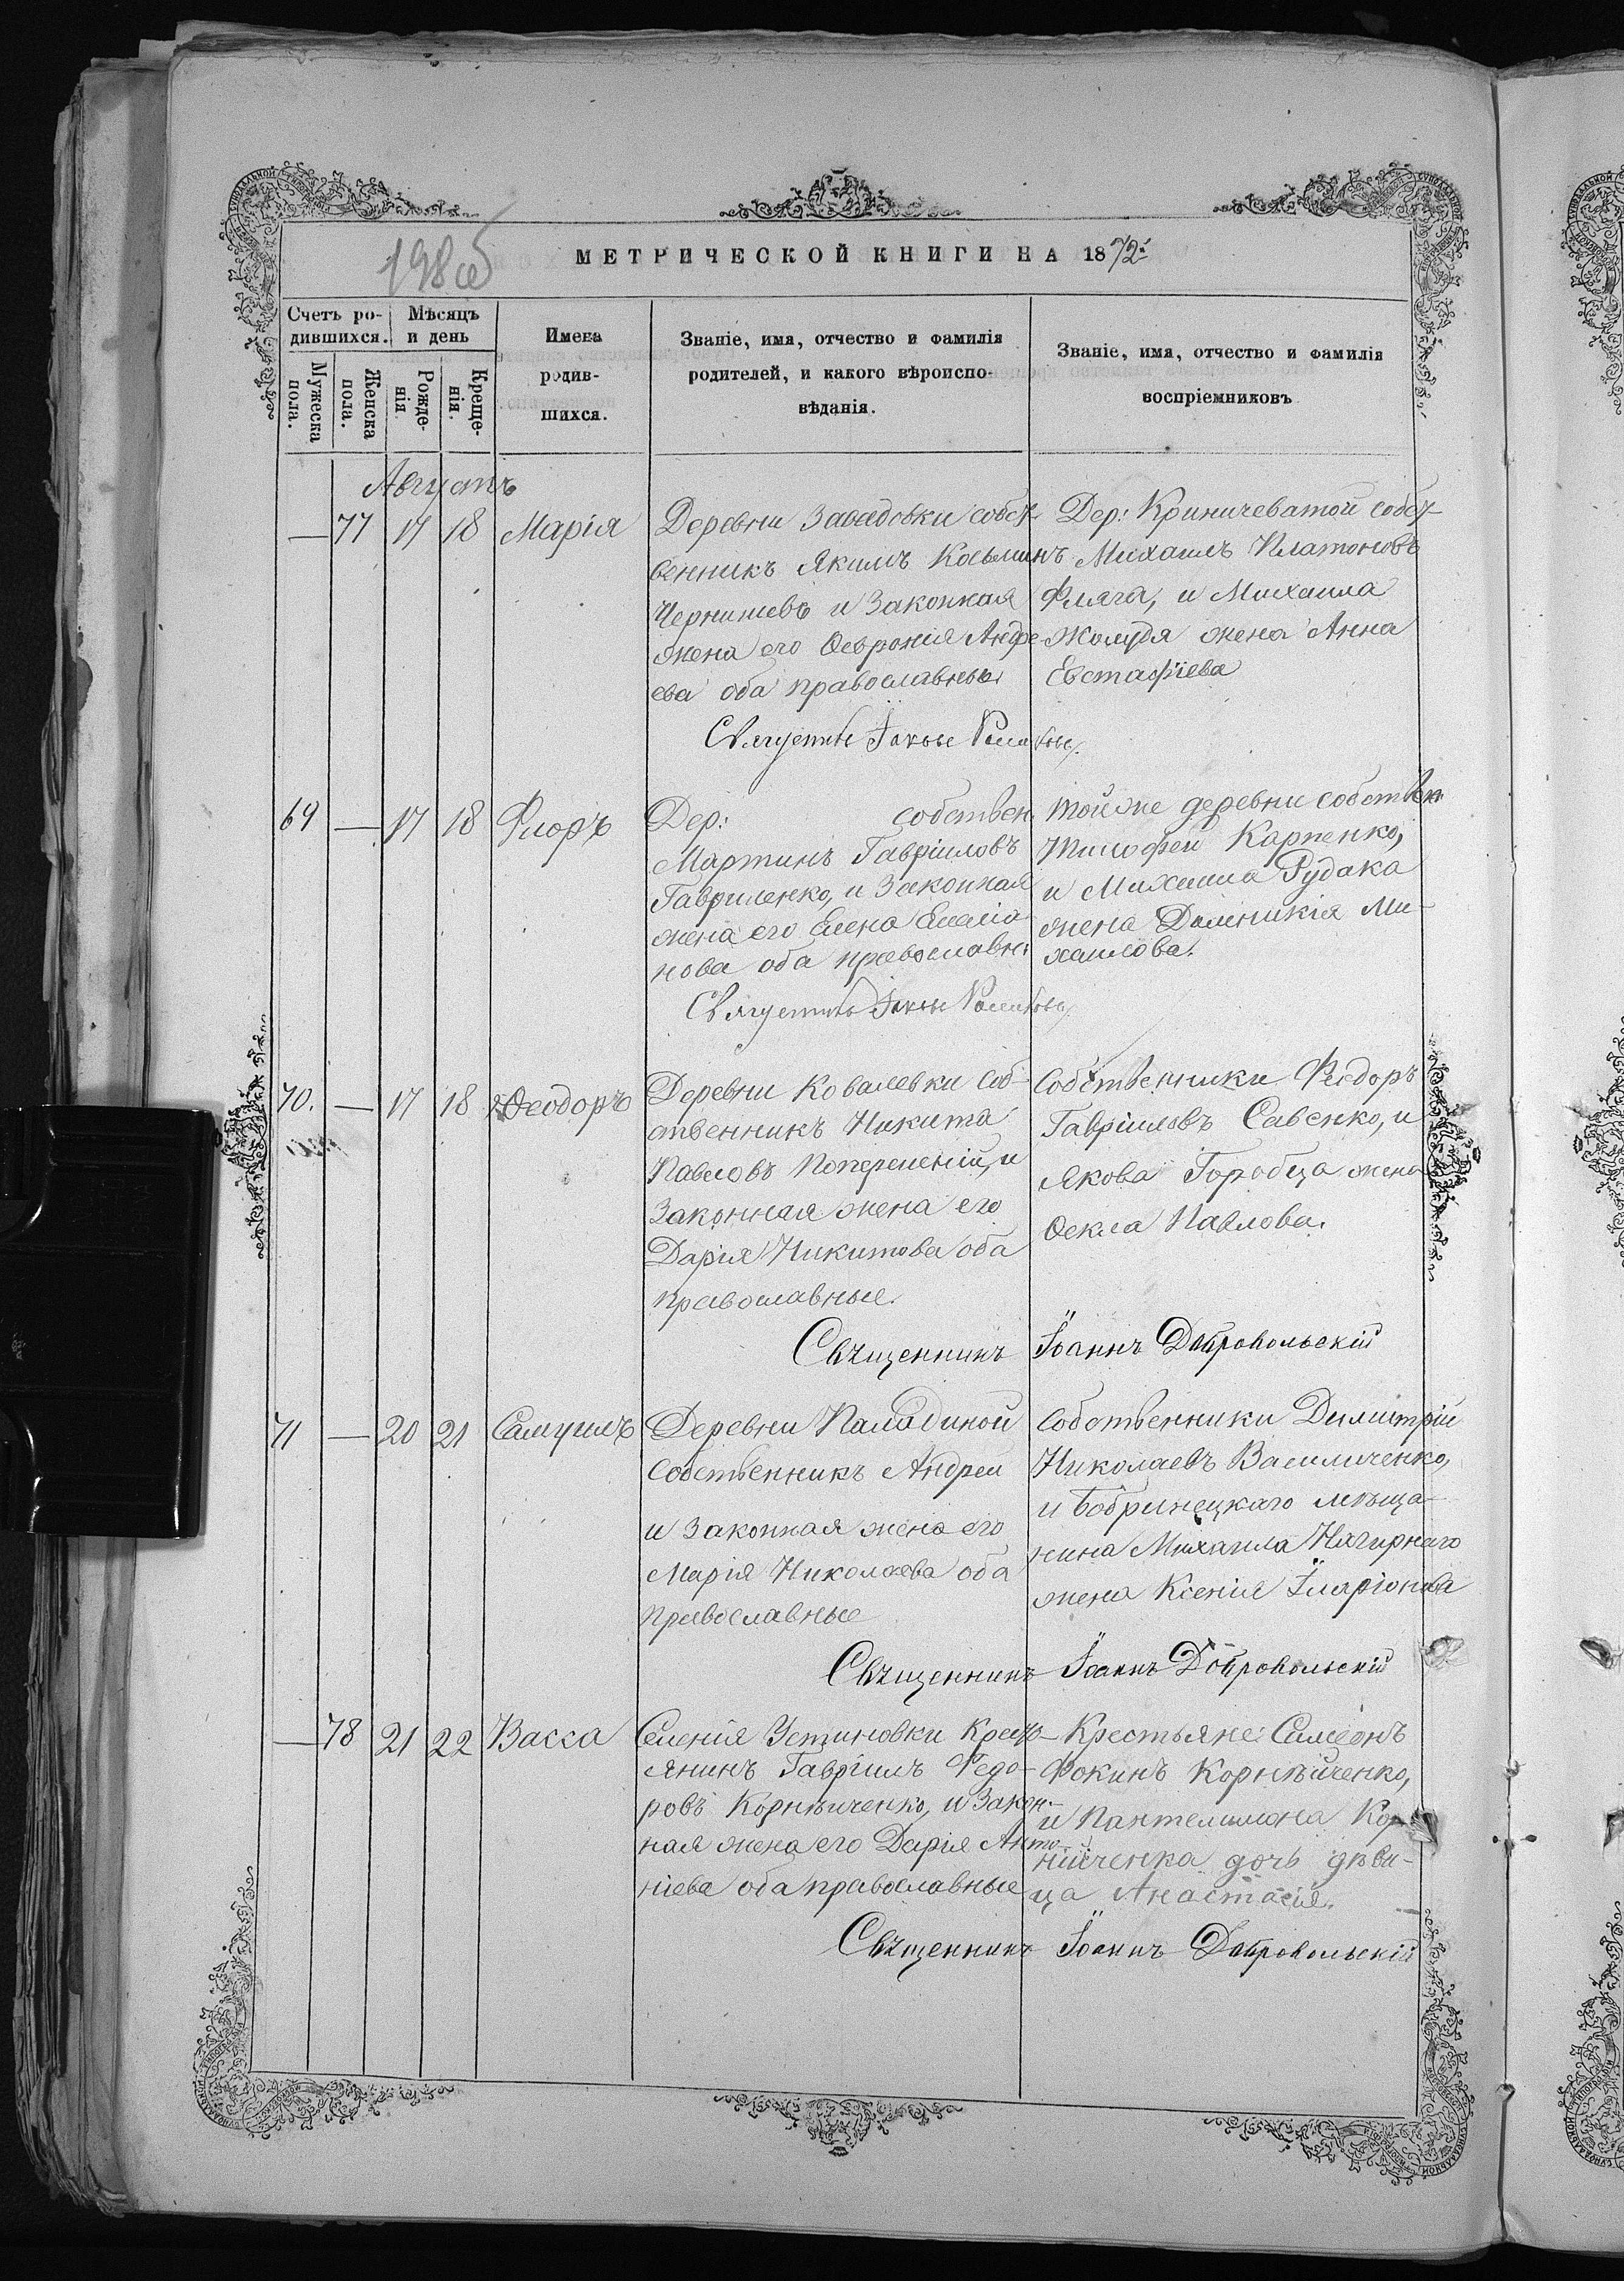 198 об
МЕТРИЧЕСКОЙ КНИГИ НА 1872:
Счетъ ро-
дившихся.
Мужеска
пола.
Женска
пола.
Мѣсяцъ
и день
Рожде-
нія.
Креще-
нія.
Имена
родив-
шихся.
Званіе, имя, отчество и фамилія
родителей, и какого вѣроиспо-
вѣданія.
Званіе, имя, отчество и фамилія
воспріемниковъ
Августъ
— 77 17 18 Марія
Деревни Завадовки собст-
венникъ Якимъ Косьминъ
Чернишевъ и законная
жена его Ѳеѵронія Андре-
ева оба православны
Дер: Криничеватой собст-
Михаилъ Платоновъ
Фляга, и Михаила
Жолудя жена Анна
Евстафіева
69 — 17 18 Флоръ
Дер: собствен.
Мартинъ Гавріиловъ
Гавриленко, и законная
жена его Елена Емелія-
нова оба православн:
Тойже деревни собствен
Тимофей Карпенко,
и Михаила Рудака
жена Домникія Ми-
хаилова.
70. — 17 18 Ѳеодоръ
Деревни Ковалевки соб-
ственникъ Никита
Павловъ и
законная жена его
Дарія Никитова оба
православные.
Собственники Феодоръ
Гавріиловъ Савенко, и
Якова Горобца жена
Ѳекла Павлова.
Священникъ Іоаннъ Добровольскій
71 — 20 21 Самуилъ
Деревни Паладиной
собственникъ Андрей
и законная жена его
Марія Николаева оба
православные
Собственники Димитрій
Николаевъ Василиченко,
и Бобринецкаго мѣща-
нина Михаила Нагирнаго
жена Ксенія Иларіонова
Священникъ Іоаннъ Добровольскій
— 78 21 22 Васса
Селенія Устиновки Крестъ-
янинъ Гавріилъ Федо-
ровъ Корнѣиченко, и закон-
ная жена его Дарія Анто-
ніева оба православные
Крестьяне: Симеонъ
Фокинъ Корнѣиченко,
и Пантелимона Кор-
нійченка дочь дѣви-
ца Анастасія.
Священникъ Іоаннъ Добровольскій